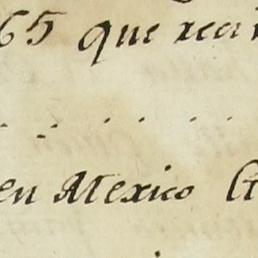 65 que reci
en Mexico